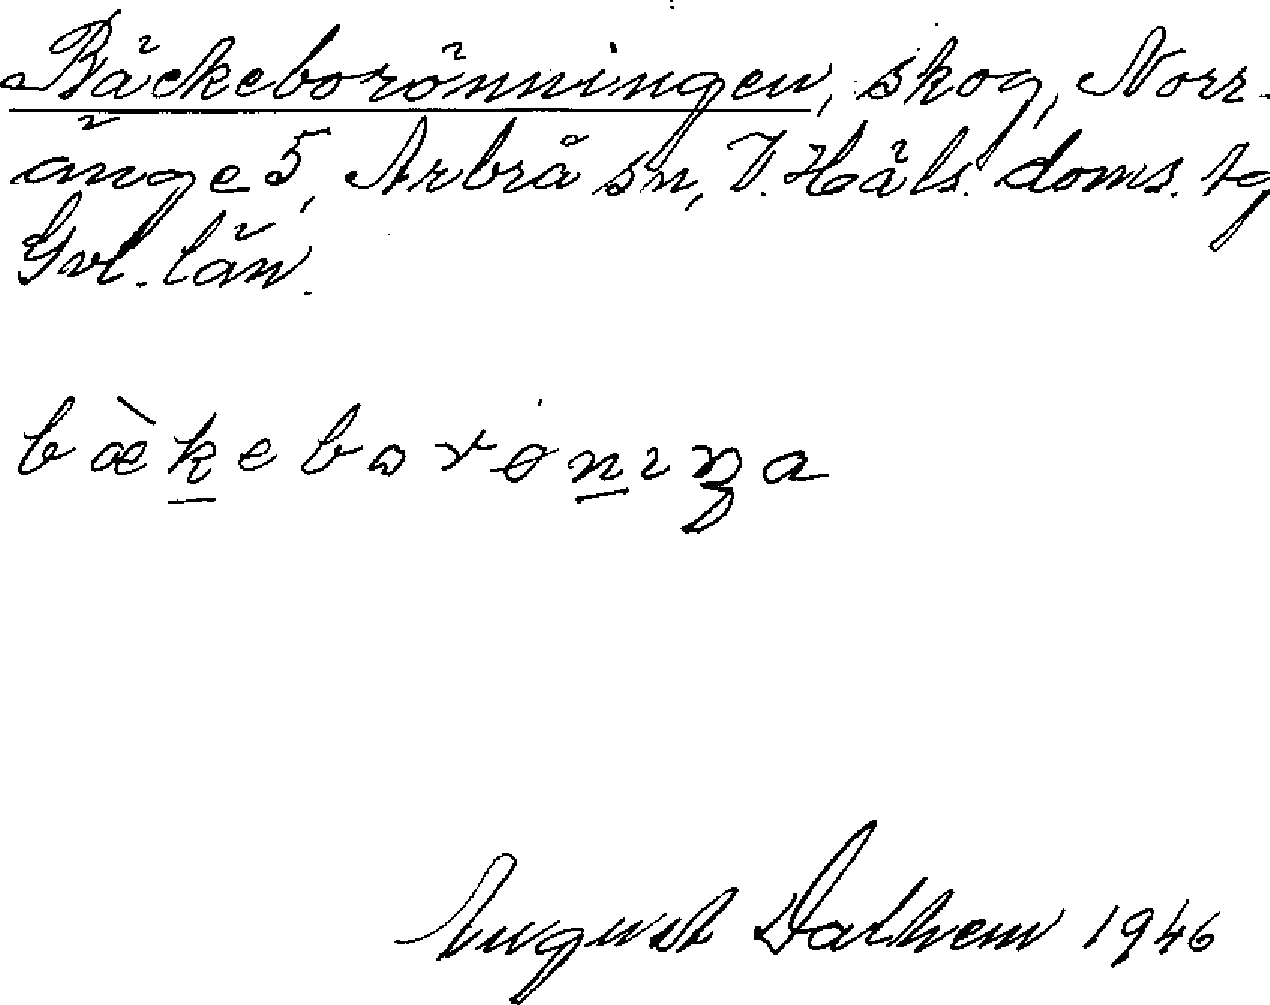 Bäckeborönningen, skog, Norr-
änge 5, Arbrå sn, V. Häls. doms. tg
Gvl. län.
bæ̀k̲eborøn̲ıŋa
August Dalhem 1946